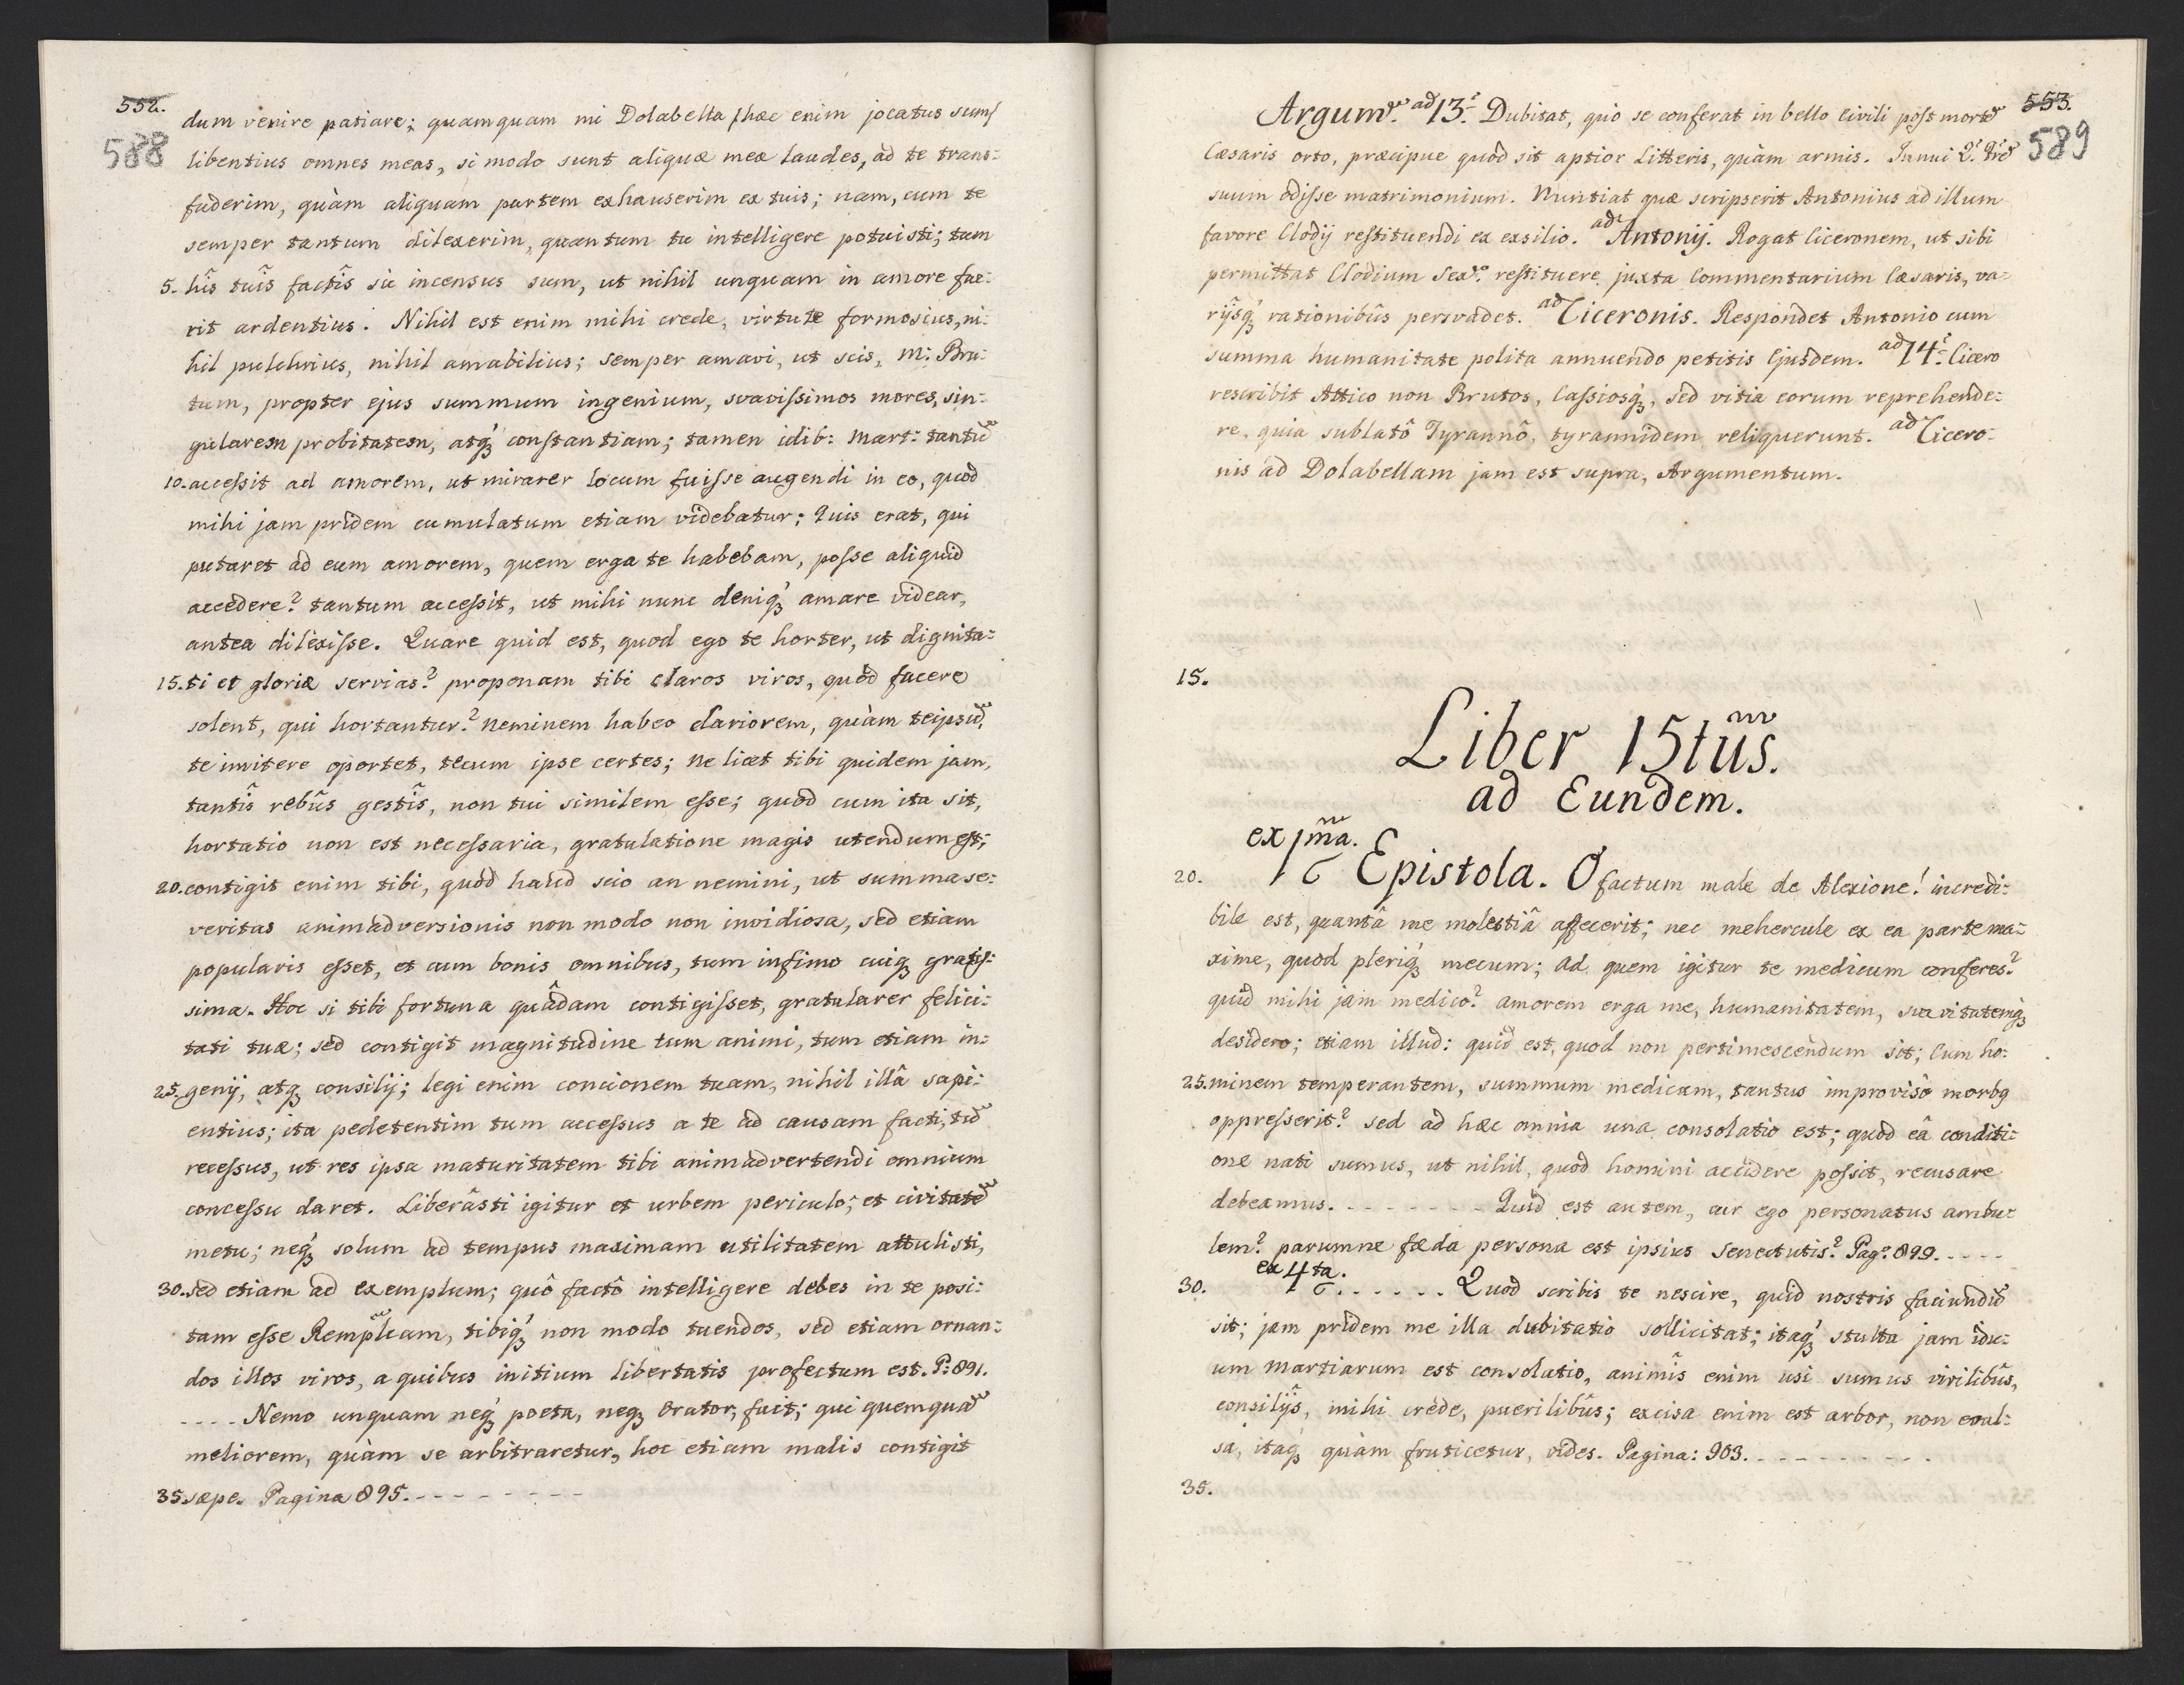 552.
588
dum venire patiare; quamquam mi Dolabella /hæc enim jocatus sum/
libentius omnes meas, si modo sunt aliquæ meæ laudes, ad te trans:
fuderim, quàm aliquam partem exhauserim ex tuis; nam, cum te
semper tantum dilexerim, quantum tu intelligere potuisti; tum
5. hîs tuîs factîs sic incensus sum, ut nihil unquam in amore fue:
rit ardentius. Nihil est enim mihi crede, virtute formosius, ni:
hil pulchrius, nihil amabilius; semper amavi, ut scis, M: Bru:
tum, propter ejus summum ingenium, svavissimos mores, sin:
gularem probitatem, atq́ꝫ constantiam; tamen idib: Mart: tantũ
10. accessit ad amorem, ut mirarer locum fuisse augendi in eo, quod
mihi jam pridem cumulatum etiam videbatur; Quis erat, qui
putaret ad eum amorem, quem erga te habebam, posse aliquid
accedere? tantum accessit, ut mihi nunc deniq́ꝫ amare videar,
antea dilèxisse. Quare quid est, quod ego te horter, ut dignita:
15. ti et gloriæ servias? proponam tibi claros viros, quòd facere
solent, qui hortantur? Neminem habeo clariorem, quàm teipsũ,
te imitere oportet, tecum ipse certes; Ne licet tibi quidem jam,
tantîs rebûs gestîs, non tui similem esse; quòd cum ita sit,
hortatio non est necessaria, gratulatione magis utendum est;
20. contigit enim tibi, quòd haud scio an nemini, ut summa se:
veritas animadversionis non modo non invidiosa, sed etiam
popularis esset, et cum bonis omnibus, tum infimo cuiqꝫ gratis:
sima. Hoc si tibi fortuna quâdam contigisset, gratularer felici:
tati tuæ; sed contigit magnitudine tum animi, tum etiam in:
25. genij, atqꝫ consilij; legi enim concionem tuam, nihil illâ sapi:
entius; ita pedetentim tum accessus a te ad causam facti, tũ
recessus, ut res ipsa maturitatem tibi animadvertendi omnium
concessu daret. Liberâsti igitur et urbem periculo; et civitatẽ
metu; neq́ꝫ solum ad tempus maximam utilitatem attulisti,
30. sed etiam ad exemplum; quô factô intelligere debes in te posi:
tam esse Rempl̃icam, tibiq́ꝫ non modo tuendos, sed etiam ornan:
dos illos viros, a quibus initium libertatis profectum est. P: 891.
.... Nemo unquam neq́ꝫ poeta, neqꝫ Orator, fuit; qui quemquã
meliorem, quàm se arbitraretur, hoc etiam malis contigit
35. sæpe. Pagina 895. - - - - - - - - -
553.
589
Argum̃. ad 13. Dubitat, quo se conferat in bello Civili post mortẽ
Cæsaris orto, præcipue quòd sit aptior Litteris, quàm armis. Innui Q. frẽ
suum odisse matrimonium. Nuntiat quæ scripserit Antonius ad illum
favore Clodij restituendi ex exsilio. ad Antonij. Rogat Ciceronem, ut sibi
permittat Clodium Sex. restituere juxta Commentarium Cæsaris, va:
rijsq́ꝫ rationibûs persvadet. ad Ciceronis. Respondet Antonio cum
summa humanitate polita annuendo petitis Ejusdem. ad 14. Cicero
rescribit Attico non Brutos, Cassiosq́ꝫ, sed vitia eorum reprehende:
re, quia sublatô Tyrannô, tyrannidem reliquerunt. ad Cicero:
nis ad Dolabellam jam est supra, Argumentum.
15.
Liber 15tus.
ad Eundem.
ex 1ma.
20. Epistola. O factum male de Alexione! incredi:
bile est, quantâ me molestiâ affecerit; nec mehercule ex ea parte ma:
xime, quod pleriq́ꝫ mecum; Ad quem igitur te medicum conferes?
quid mihi jam medico? amorem erga me, humanitatem, svavitatemqꝫ
desidero; etiam illud: quid est, quod non pertimescendum sit; Cum ho:
25. minem temperantem, summum medicum, tantus improvisô morbꝯ
oppresserit? sed ad hæc omnia una consolatio est; quòd eâ conditi:
one nati sumus, ut nihil, quod homini accidere possit, recusare
debeamus. - - - - - - - Quid est autem, cur ego personatus ambu:
lem? parumne fæda persona est ipsius Senectutis? Pag. 899. - - - -
ex 4ta.
30. . . . . . . Quod scribis te nescire, quid nostris faciendũ
sit; jam pridem me illa dubitatio sollicitat; itaq́ꝫ stulta jam idu:
um Martiarum est consolatio, animîs enim usi sumus virilibûs,
consilijs, mihi crede, puerilibûs; excisa enim est arbor, non evul:
sa, itaq́ꝫ quàm fruticetur, vides. Pagina: 903. - - - - - - - - -
35.